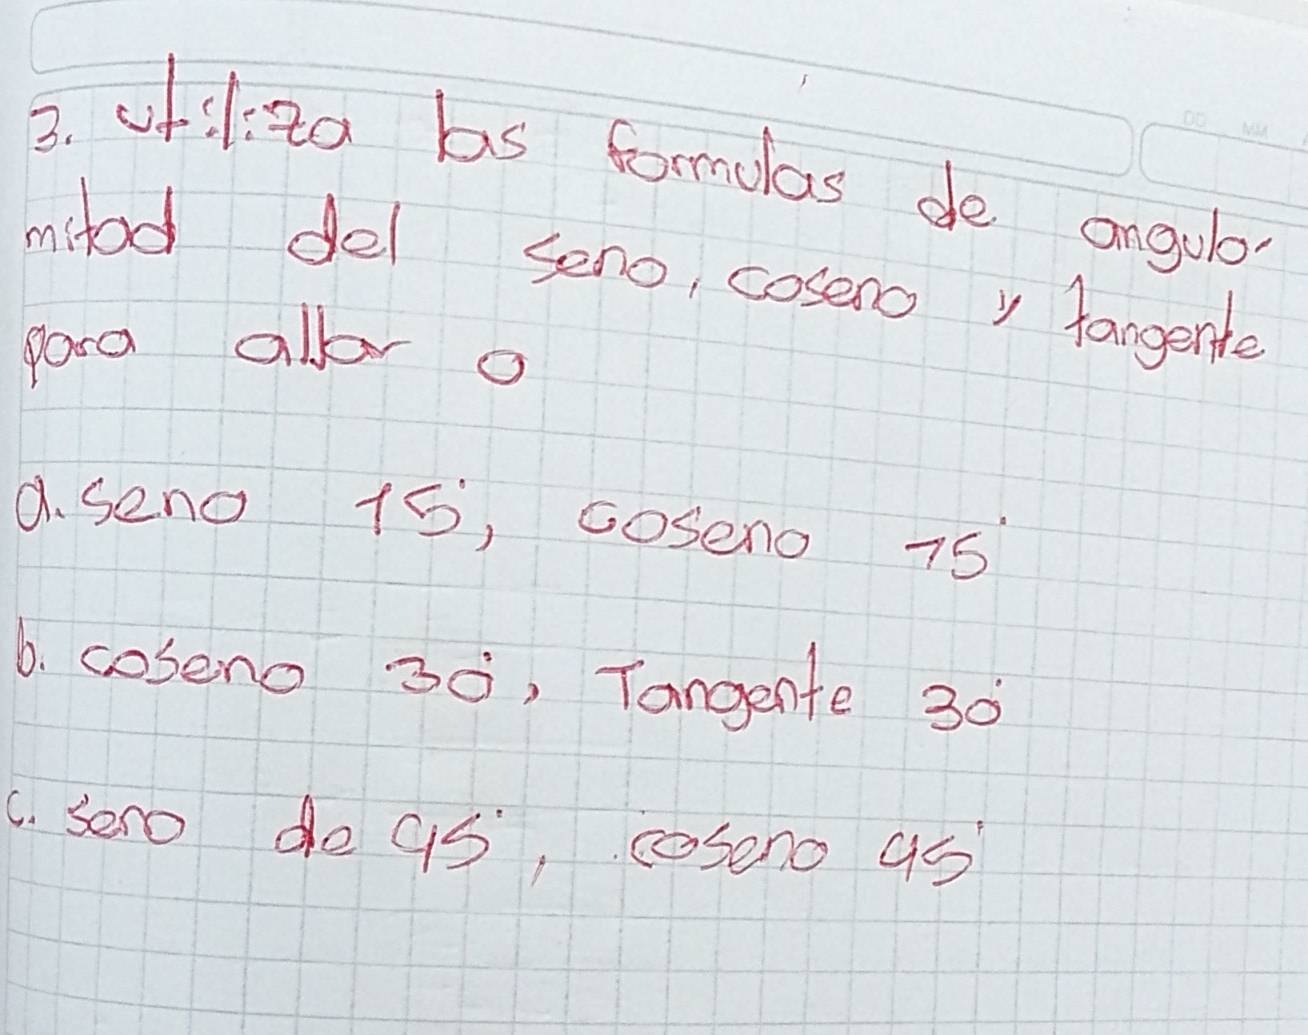 DD MM
3. utiliza las formulas de angulo
mitad del seno, coseno y tangente
para allar o
a. seno 15°, coseno 15°
b. coseno 30°, Tangente 30°
c. seno de 45°, coseno 45°